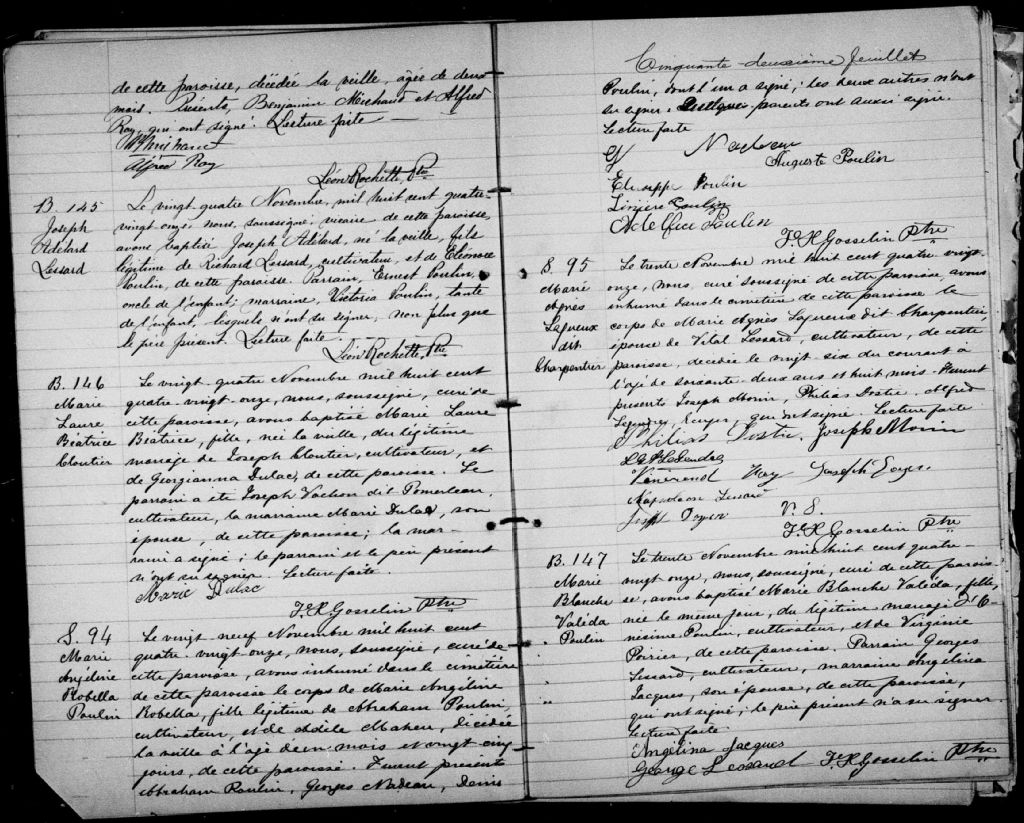 de cette paroisse, décédée la veille, âgée de deux
mois. Présents, Benjamin Michaud et Alfred
Roy, qui ont signé. Lecture faite
Alfred Roy
Léon Rochette, Ptre
B. 145
Joseph
Adélard
Lessard
Le vingt quatre Novembre, mil huit cent quatre-
vingt-onze, nous, soussigné, vicaire de cette paroisse,
avons baptisé Joseph Adélard, né la veille, fils
légitime de Richard Lessard, cultivateur, et de Eléonore
Poulin, de cette paroisse. Parrain, Ernest Poulin,
oncle de l'enfant; marraine, Victoria Poulin, tante
de l'enfant, lesquels n'ont su signer, non plus que
le père présent. Lecture faite.
Léon Rochette, Ptre
B. 146
Marie
Laure
Béatrice
Cloutier
Le vingt-quatre Novembre mil huit cent
quatre-vingt-onze, nous, soussigné, curé de
cette paroisse, avons baptisé Marie Laure
Béatrice, fille, née la veille, du légitime
mariage de Joseph Cloutier, cultivateur, et
de Georgianna Dulac, de cette paroisse. Le
parrain a été Joseph Vachon dit Pomerleau,
cultivateur, la marraine Marie Dulac, son
épouse, de cette paroisse; la mar-
raine a signé; le parrain et le père présent
n'ont su signer. Lecture faite.
Marie Dulac
F. X. Gosselin Ptre
S. 94
Marie
Angéline
Robella
Poulin
Le vingt neuf Novembre mil huit cent
quatre-vingt-onze, nous, soussigné, curé de
cette paroisse, avons inhumé dans le cimetière
de cette paroisse le corps de Marie Angéline
Robella, fille légitime de Abraham Poulin,
cultivateur, et de Adèle Maheu, décédée
la veille à l'âge de un mois et vingt cinq
jours, de cette paroisse. Furent présents
Abraham Poulin, Georges Nadeau, Denis
Cinquante-deuxième feuillet
Poulin, dont l'un a signé; les deux autres n'ont
su signer. Quelques parents ont aussi signé.
Lecture faite
G Nadeau
Auguste Poulin
Eleusippe Poulin
Linière Poulin
Poulin
F. X. Gosselin Ptre
S. 95
Marie
Agnès
Lajeux
dit
Charpentier
Le trente Novembre mil huit cent quatre vingt-
onze, nous, curé soussigné de cette paroisse avons
inhumé dans le cimetière de cette paroisse le
corps de Marie Agnès Lajeux dit Charpentier,
épouse de Vital Lessard, cultivateur, de cette
paroisse, décédée le vingt-six du courant à
l'âge de soixante-deux ans et huit mois. Furent
présents Joseph Morin, Philias Dostie, Alfred
qui ont signé. Lecture faite
Philias Dostie, Joseph Morin
Vénérend Roy Joseph
Napoléon Lessard
V. S.
F. X. Gosselin Ptre
B. 147
Marie
Blanche
Valéda
Poulin
Le trente Novembre mil huit cent quatre-
vingt-onze, nous, soussigné, curé de cette parois-
se, avons baptisé Marie Blanche Valéda, fille,
née le même jour, du légitime mariage d'O-
nésime Poulin, cultivateur, et de Virginie
Poirier, de cette paroisse. Parrain Georges
Lessard, cultivateur, marraine Angélina
Jacques, son épouse, de cette paroisse,
qui ont signé; le père présent n'a su signer.
Lecture faite.
Angélina Jacques
George Lessard F. X. Gosselin Ptre